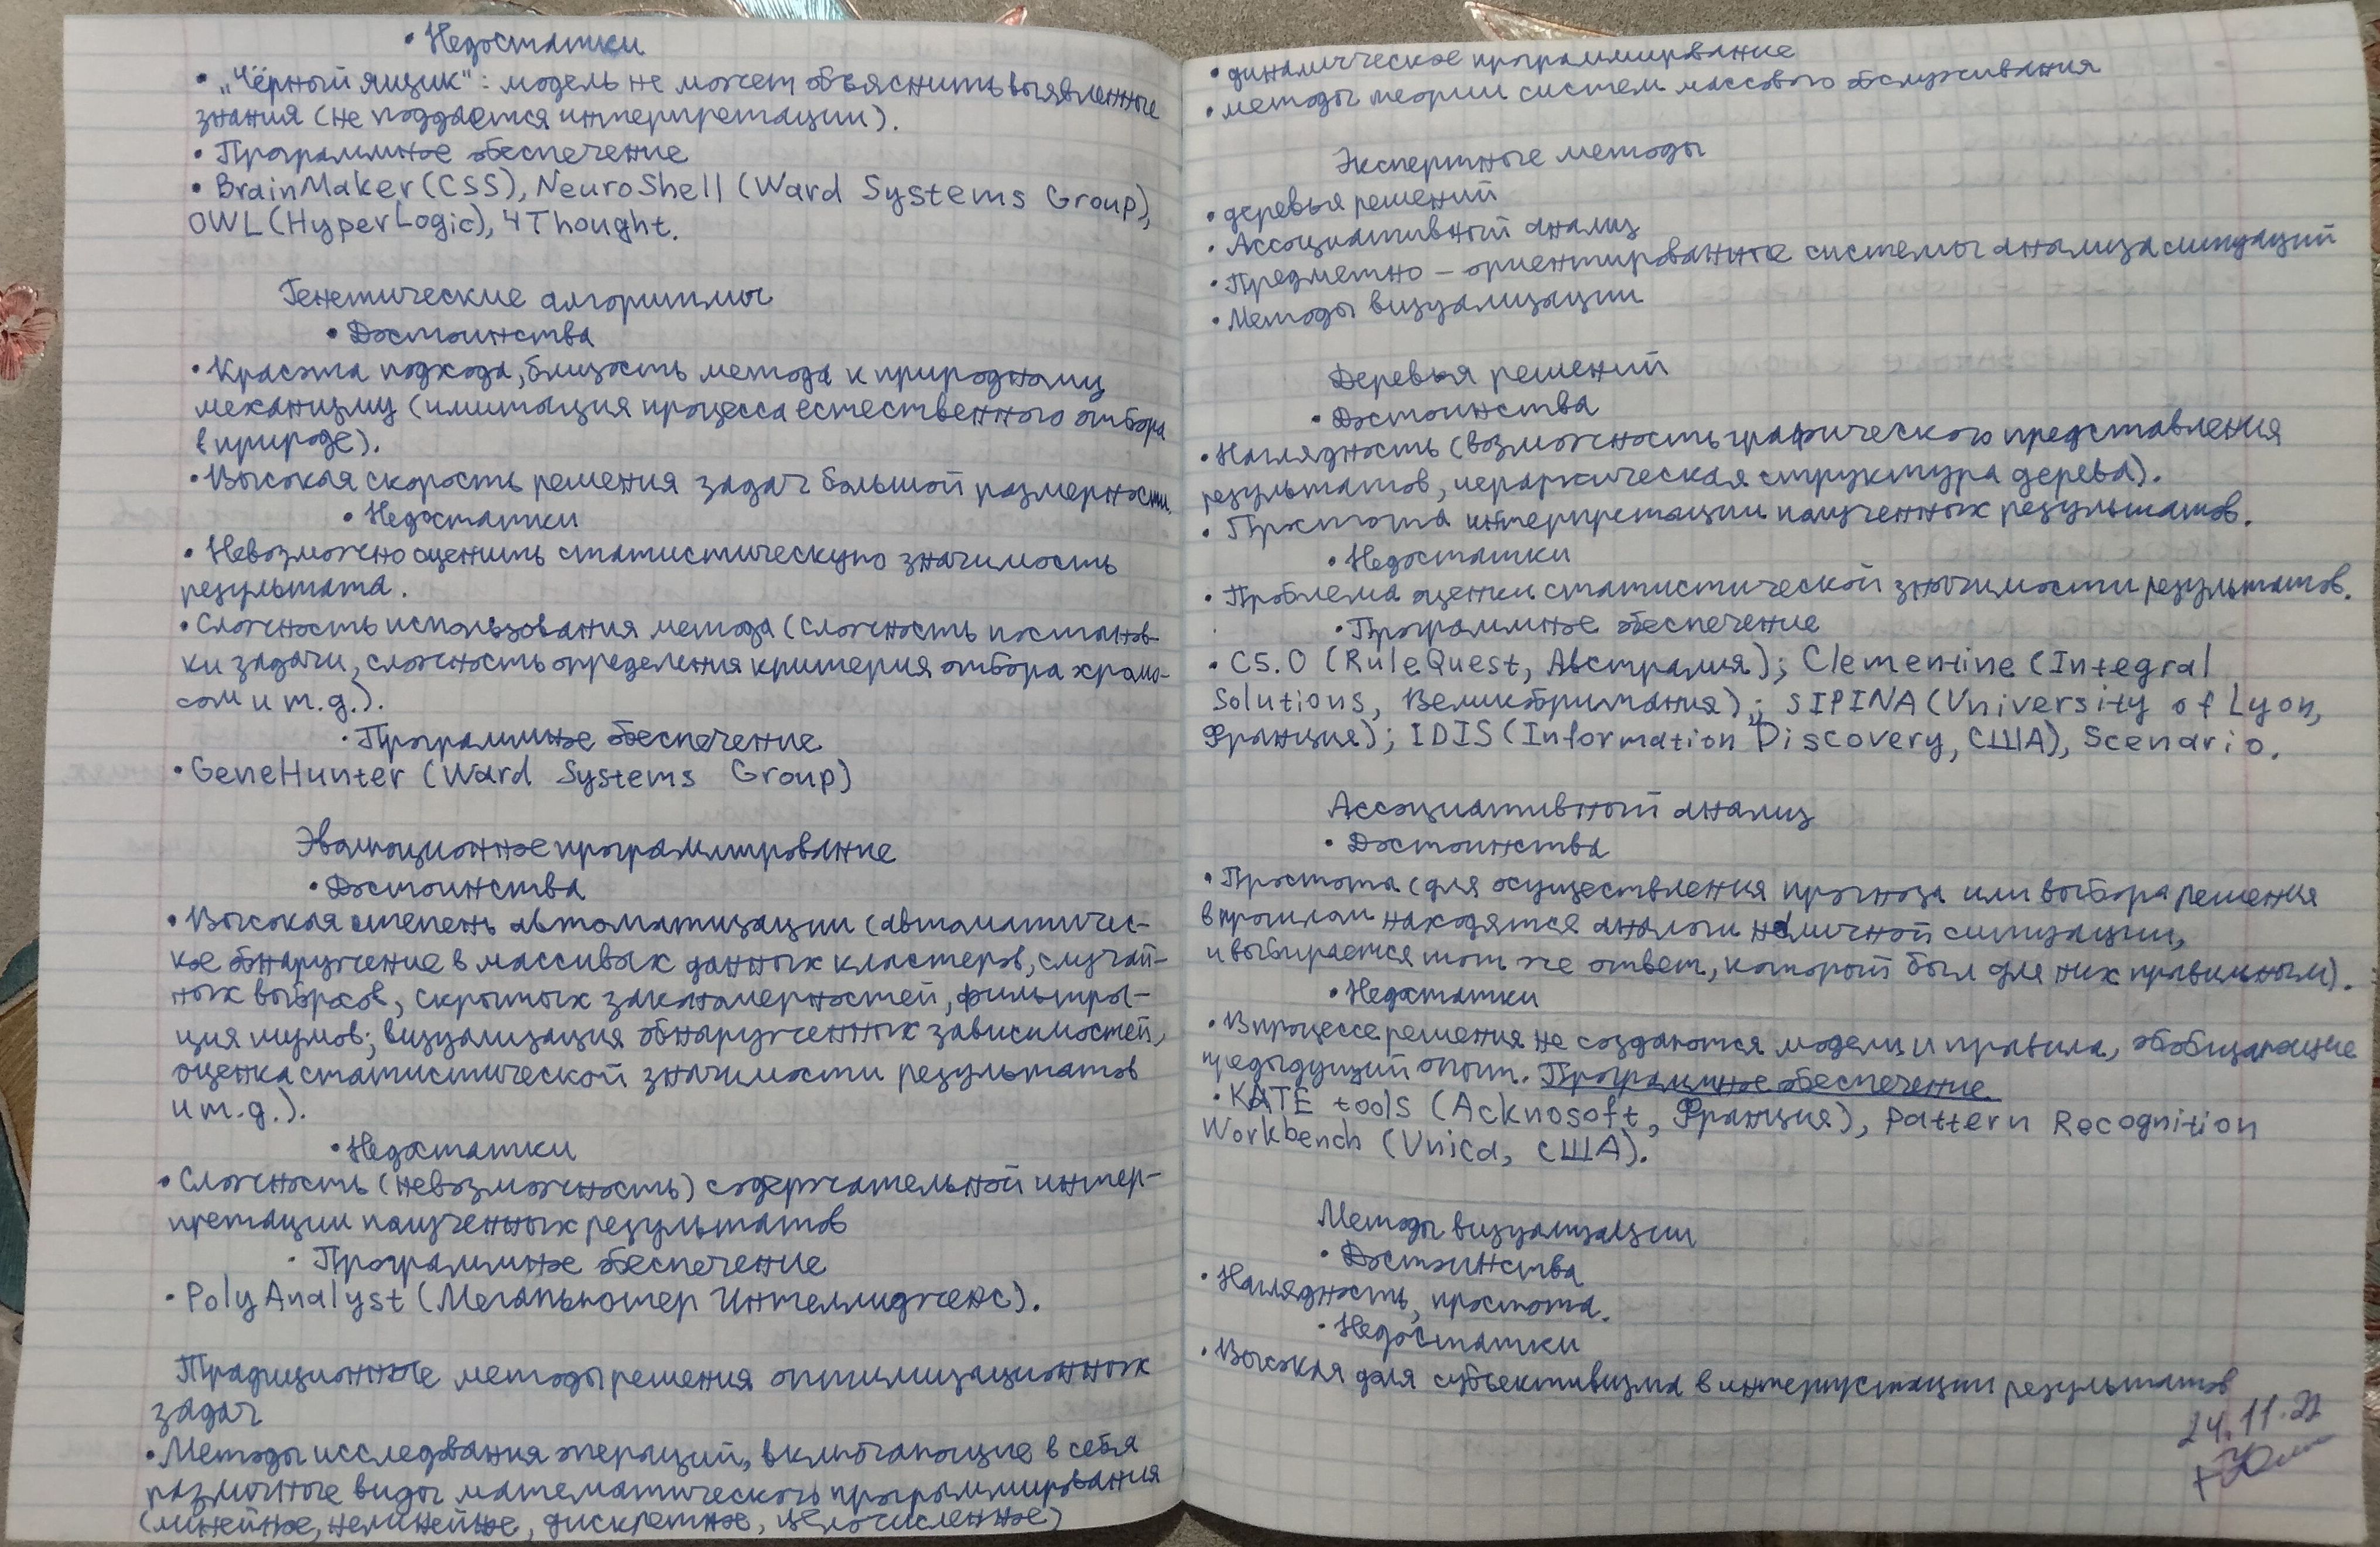 • Недостатки
• „Чёрный ящик“: модель не может объяснить выявленные
знания (не поддается интерпретации).
• Программное обеспечение
• BrainMaker (CSS), NeuroShell (Ward Systems Group),
OWL (HyperLogic), 4Thought.
Генетические алгоритмы
• Достоинства
• Красота подхода, близость метода к природному
механизму (имитация процесса естественного отбора
в природе).
• Высокая скорость решения задач большой размерности.
• Недостатки
• Невозможно оценить статистическую значимость
результата.
• Сложность использования метода (сложность постанов-
ки задачи, сложность определения критерия отбора хромо-
сом и т.д.).
• Программное обеспечение
• GeneHunter (Ward Systems Group)
Эволюционное программирование
• Достоинства
• Высокая степень автоматизации (автоматичес-
кое обнаружение в массивах данных кластеров, случай-
ных выбросов, скрытых закономерностей, фильтра-
ция шумов; визуализация обнаруженных зависимостей,
оценка статистической значимости результатов
и т.д.).
• Недостатки
• Сложность (невозможность) содержательной интер-
претации полученных результатов
• Программное обеспечение
• PolyAnalyst (Мегапьютер Интеллидженс).
Традиционные методы решения оптимизационных
задач
• Методы исследования операций, включающие в себя
различные виды математического программирования
(линейное, нелинейное, дискретное, целочисленное)
• динамическое программирование
• методы теории систем массового обслуживания
Экспертные методы
• деревья решений
• Ассоциативный анализ
• Предметно – ориентированные системы анализа ситуаций
• Методы визуализации
Деревья решений
• Достоинства
• Наглядность (возможность графического представления
результатов, иерархическая структура дерева).
• Простота интерпретации полученных результатов.
• Недостатки
• Проблема оценки статистической значимости результатов.
• Программное обеспечение
• C5.0 (RuleQuest, Австралия); Clementine (Integral
Solutions, Великобритания); SIPINA (University of Lyon,
Франция); IDIS (Information Discovery, США), Scenario.
Ассоциативный анализ
• Достоинства
• Простота (для осуществления прогноза или выбора решения
в прошлом находятся аналоги наличной ситуации,
и выбирается тот же ответ, который был для них правильным).
• Недостатки
• В процессе решения не создаются модели и правила, обобщающие
предыдущий опыт. Программное обеспечение
• KATE tools (Acknosoft, Франция), Pattern Recognition
Workbench (Unica, США).
Методы визуализации
• Достоинства
• Наглядность, простота.
• Недостатки
• Высокая доля субъективизма в интерпретации результатов
24.11.22